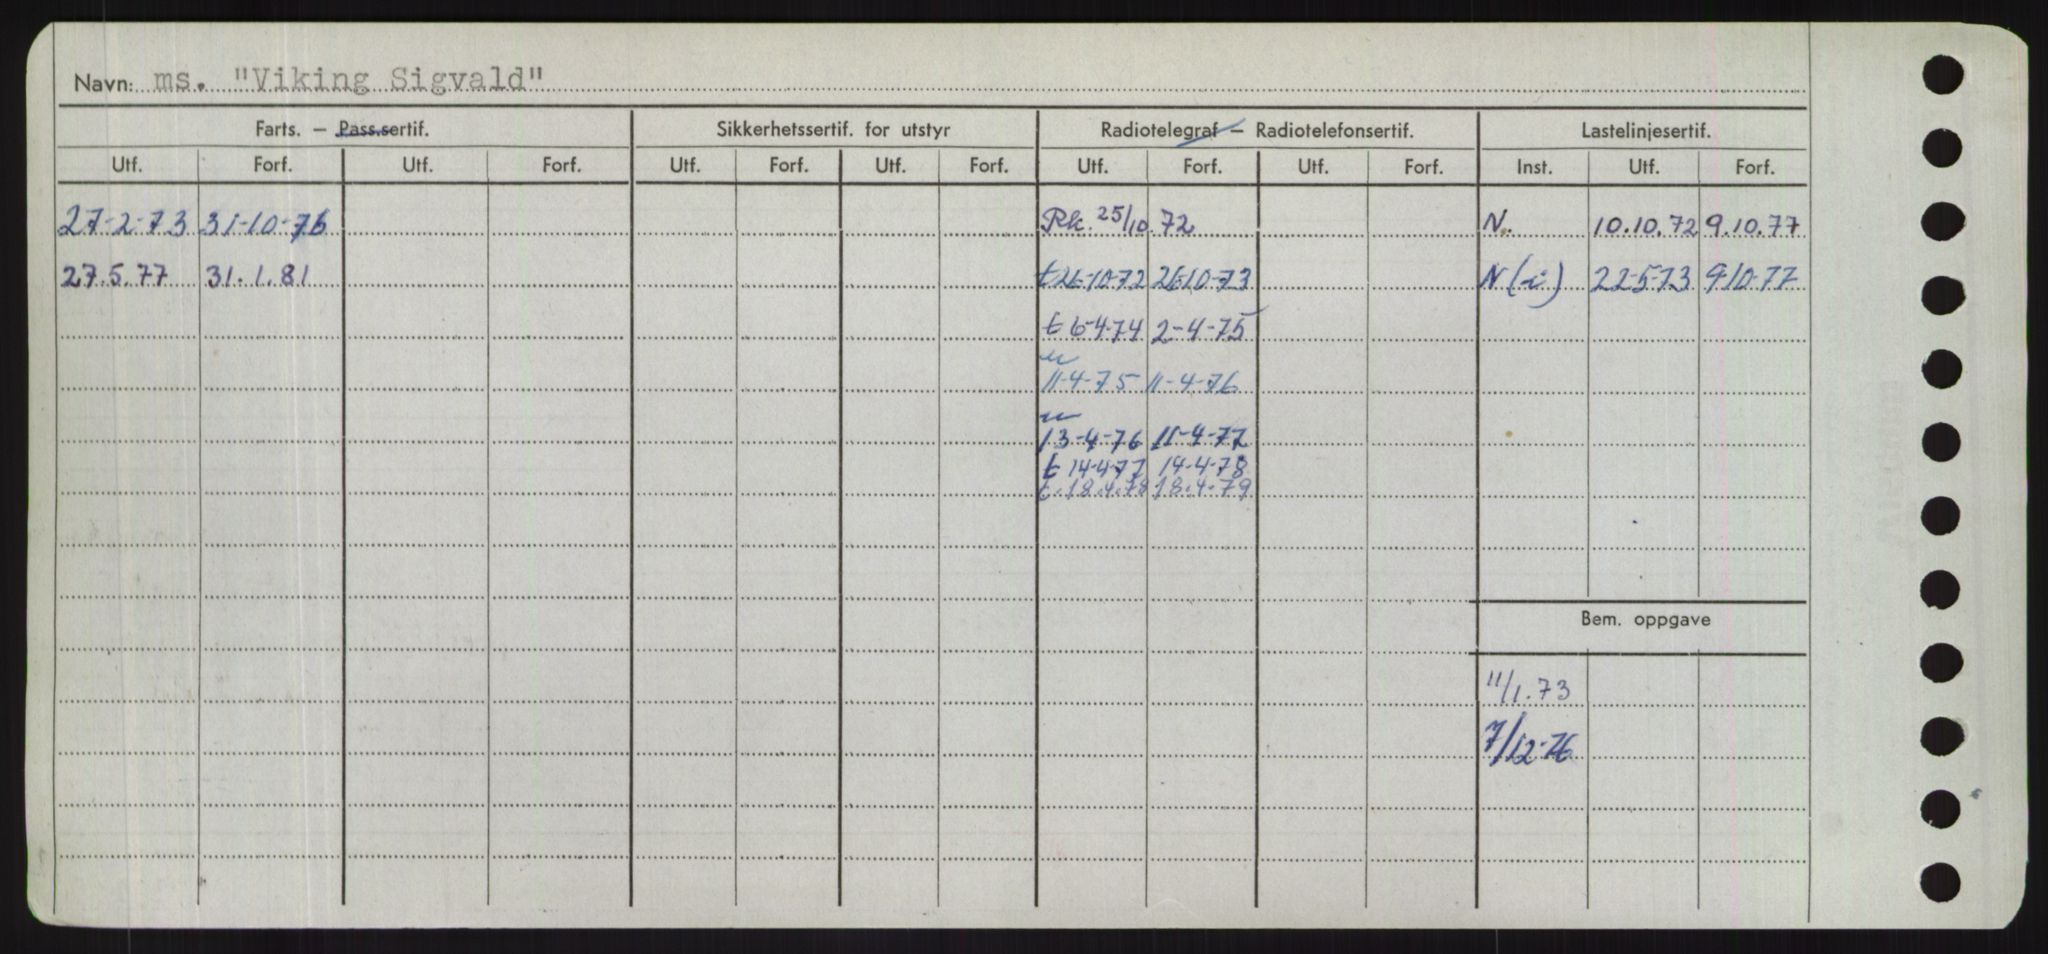 Navn: ms. "Viking Sigvald"
Farts. – Pass.sertif. Sikkerhetssertif. for utstyr Radiotelegraf – Radiotelefonsertif. Lastelinjesertif.
Utf. Forf. Utf. Forf. Utf. Forf. Utf. Forf. Utf. Forf. Utf. Forf. Inst. Utf. Forf.
27-2-73 31-10-76 Rk. 25/10.72 N. 10.10.72 9.10.77
27.5.77 31.1.81 t 26-10-72 26-10-73 N (i) 22-5-73 9-10-77
t 6-4-74 2-4-75
11-4-75 11-4-76
13-4-76 11-4-77
t 14-4-77 14-4-78
t. 18.4.78 18.4.79
Bem. oppgave
11/1.73
7/12-76